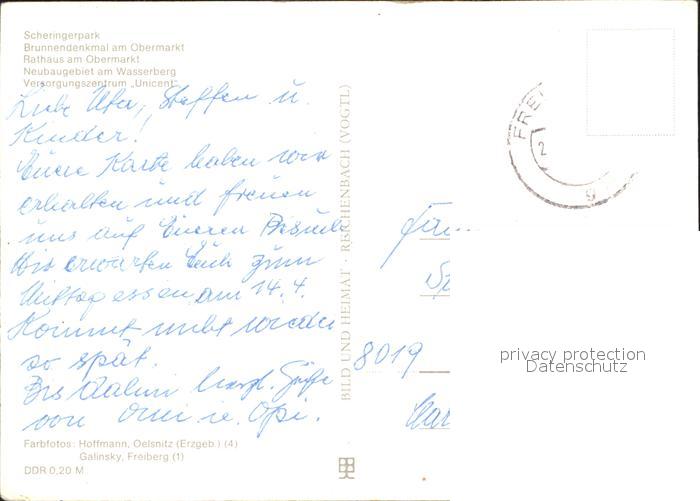 Scheringerpark
Brunnendenkmal am Obermarkt
Rathaus am Obermarkt
Neubaugebiet am Wasserberg
Versorgungszentrum „Unicent“
Liebe Uta, Steffen u.
Kinder!
Eure Karte haben wir
erhalten und freuen
uns auf Eueren Besuch
Wir erwarten Euch zum
Mittagessen am 14.4.
Kommt nicht wieder
so spät.
Bis dahin herzl. Grüße
von Omi u. Opi.
Farbfotos: Hoffmann, Oelsnitz (Erzgeb.) (4)
Galinsky, Freiberg (1)
DDR 0,20 M
BILD UND HEIMAT · REICHENBACH (VOGTL)
FREI
2
9
Fam.
8019
privacy protection
Datenschutz